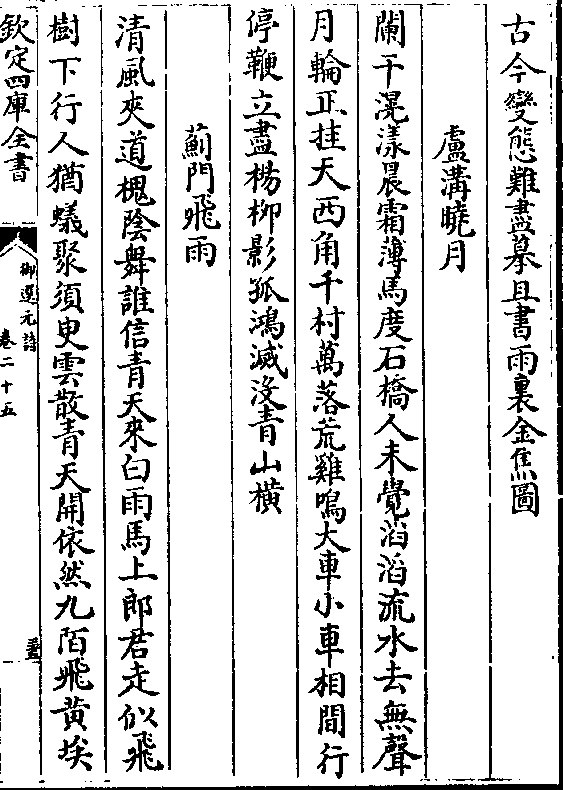 古今變態難盡摹且書雨裏金焦圖
盧溝曉月
闌干滉漾晨霜薄馬度石橋人未覺滔滔流水去無聲
月輪正挂天西角千村萬落荒雞鳴大車小車相間行
停鞭立盡楊柳影孤鴻滅没青山橫
薊門飛雨
清風夾道槐陰舞誰信青天來白雨馬上郎君走似飛
樹下行人猶蟻聚須臾雲散青天開依然九陌飛黄埃
欽定四庫全書
御選元詩
卷二十五